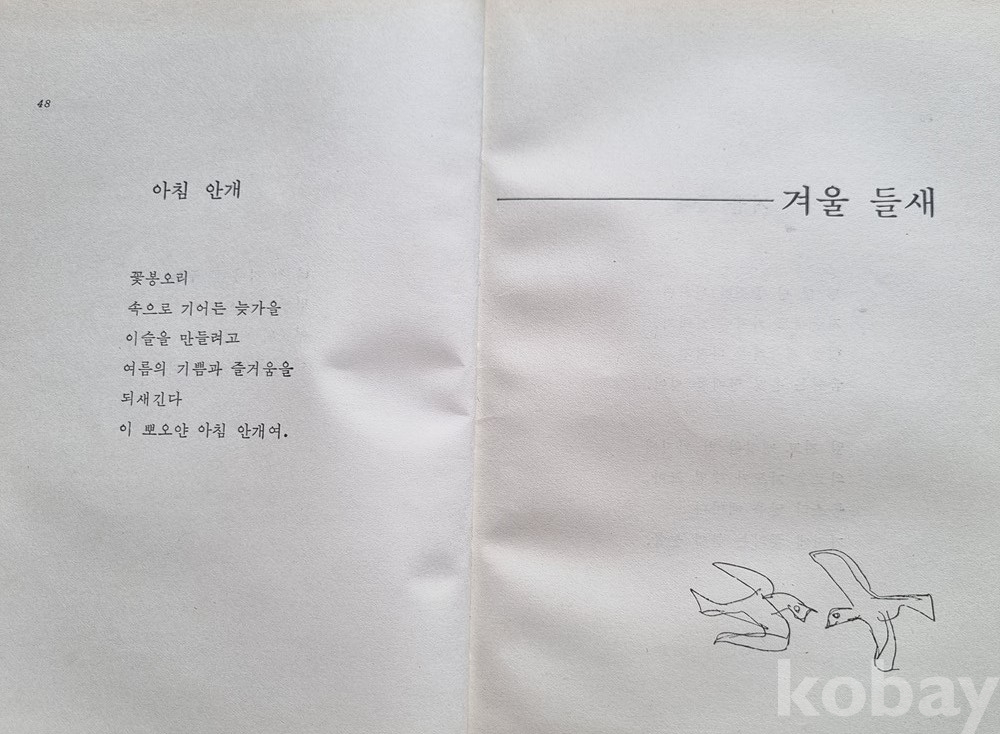 48
아침 안개
꽃봉오리
속으로 기어든 늦가을
이슬을 만들려고
여름의 기쁨과 즐거움을
되새긴다
이 뽀오얀 아침 안개여.
겨울 들새
kobay